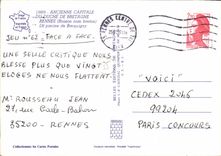 1989 - ANCIENNE CAPITALE
DU DUCHÉ DE BRETAGNE
RENNES
JEU N°62 - FACE A FACE.
UNE SEULE CRITIQUE NOUS
BLESSE PLUS QUE VINGT
ELOGES NE NOUS FLATTENT.
Mr ROUSSEAU JEAN
85 - RENNES
RENNES CENTRE
"VOICI"
CEDEX 2465
99204
PARIS CONCOURS